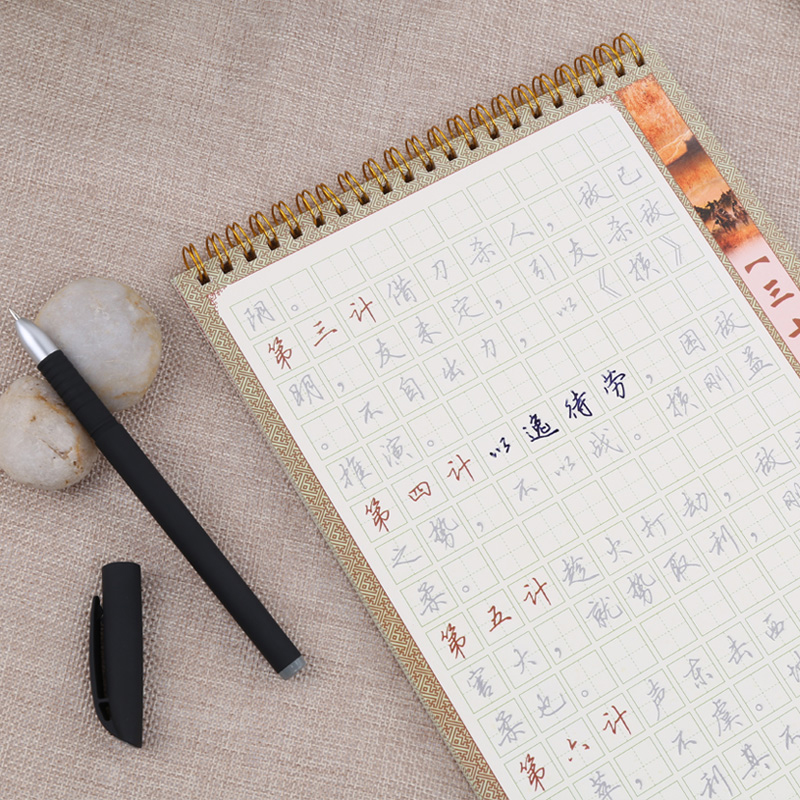 阴。
第三计借刀杀人，敌已
明，友未定，引友杀敌
。不自出力，以《损》
推演。
第四计以逸待劳，困敌
之势，不以战。损刚益
柔。
第五计趁火打劫，敌
害大，就势取利，刚
柔也。
第六计声东击西
萃，不虞。
利其不
【三十